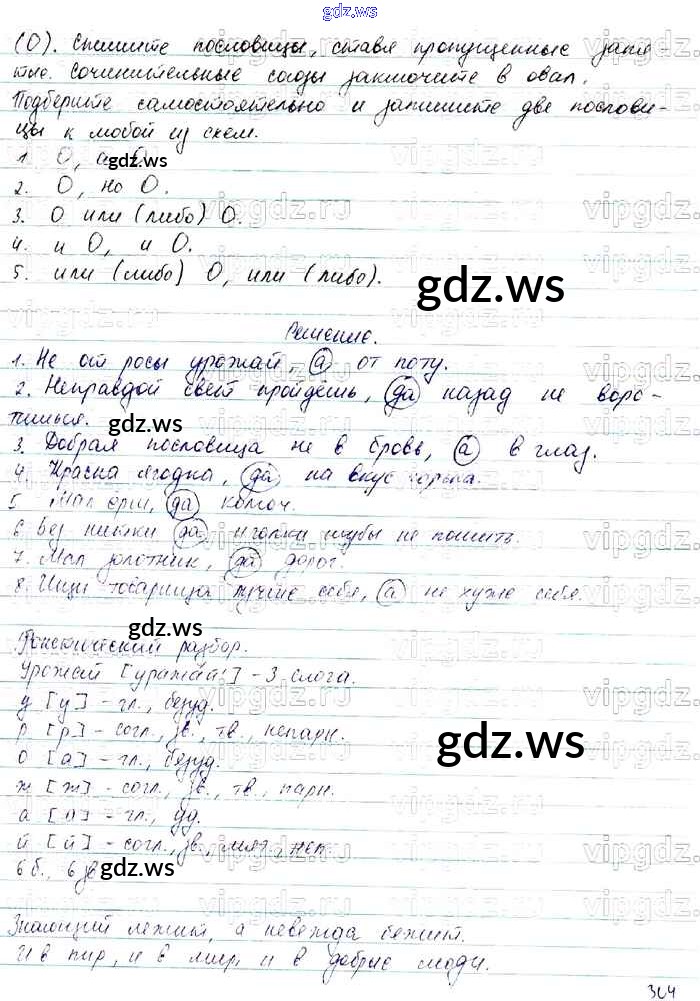 gdz.ws
(О). Спишите пословицы, ставя пропущенные запя-
тые. Сочинительные союзы заключите в овал.
Подберите самостоятельно и запишите две послови-
цы к любой из схем.
1. О, а О.
gdz.ws
2. О, но О.
3. О или (либо) О.
4. и О, и О.
5. или (либо) О, или (либо).
gdz.ws
Решение.
1. Не от росы урожай, а от поту.
2. Неправдой свет пройдёшь, да назад не воро-
тишься.
gdz.ws
3. Добрая пословица не в бровь, а в глаз.
4. Красна ягодка, да на вкус горька.
5. Мал ёрш, да колюч.
6. Без нитки да иголки шубы не пошить.
7. Мал золотник, да дорог.
8. Ищи товарища лучше себя, а не хуже себя.
gdz.ws
Фонетический разбор.
Урожай [уражай'] - 3 слога.
у [у] - гл., безуд.
р [р] - согл., зв., тв., непарн.
gdz.ws
о [а] - гл., безуд.
ж [ж] - согл., зв., тв., парн.
а [а] - гл., уд.
й [й] - согл., зв., мяг., неп.
6 б., 6 зв
gdz.ws
Знающий лежит, а невежда бежит.
И в пир, и в мир, и в добрые люди.
364
vipgdz.ru